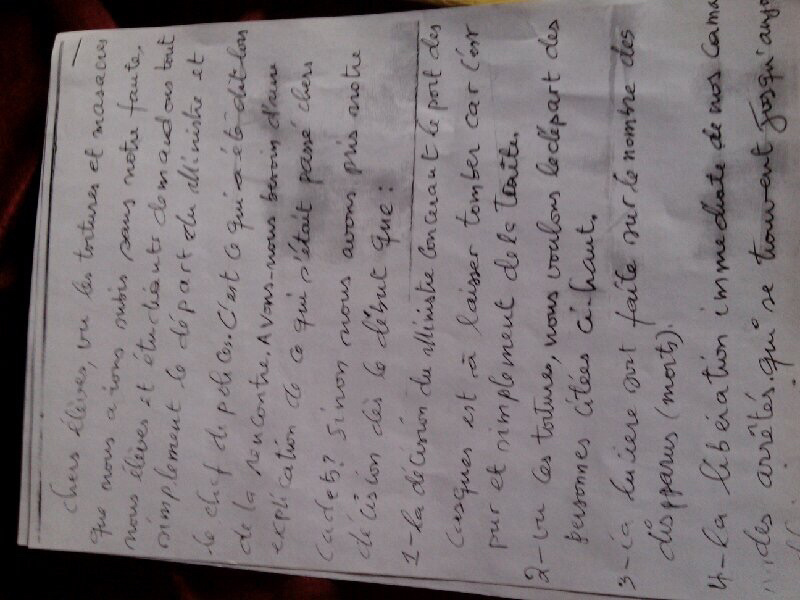 Chers élèves, vu les tortures et masacres
que nous avons subis sans notre faute,
nous élèves et étudiants demandons tout
simplement le départ du Ministre et
le chef de police. C'est ce qui a été dit lors
de la rencontre. Avons-nous besoin d'une
explication de ce qui s'était passé chers
cadets? Sinon nous avons pris notre
décision dès le début que:
1-La décision du Ministre concernant le port des
casques est à laisser tomber car c'est
pur et simplement de la Traite.
2-vu les tortures, nous voulons le départ des
personnes citées ci-haut.
3-La lumière soit faite sur le nombre des
disparus (morts).
4-La libération immediate de nos cama
rades arrêtés qui se trouvent jusqu'